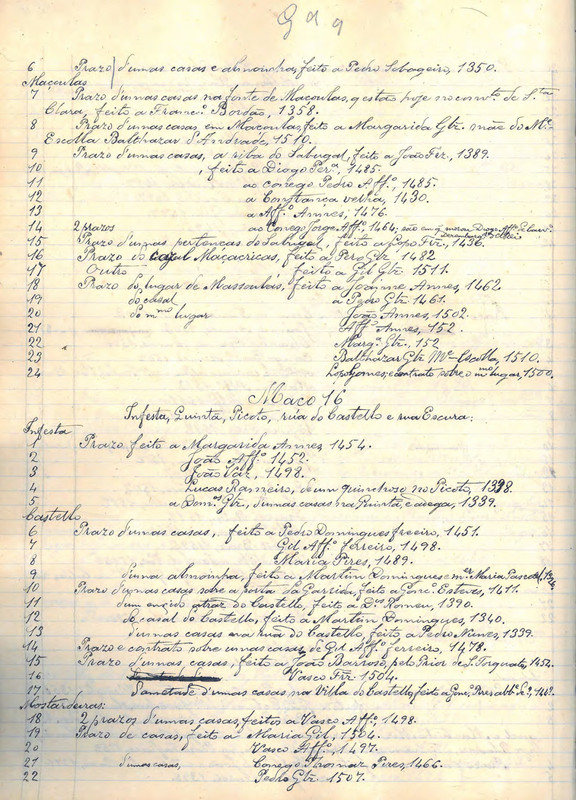 6 Prazo d'umas casas e almoinha, feito a Pedro Sobageiro, 1350.
Maçoulas
7 Prazo d'umas casas na fonte de Maçoulas, q está hoje no convto. de S.ta
Clara, feito a Franc.º Bordão, 1358.
8 Prazo d'umas casas em Maçoulas, feito a Margarida Glz. mãe do M.e
Escolla Balthazar d'Andrade, 1510.
9 Prazo d'umas casas, a riba do Sabugal, feito a João Frz., 1389.
10 , feito a Diogo Per.ª, 1485.
11 ao conego Pedro Aff.º, 1485.
12 a Constança velha, 1430.
13 a Aff.º Annes, 1476.
14 2 prazos ao Conego Jorge Aff.º 1464, são em q morou Diogo Aff.º
15 Prazo d'umas pertenças do Sabugal, feito a Lopo Frz., 1436.
16 Prazo do casal Maçacricas, feito a Pero Glz. 1482
17 Outro feito a Gil Glz. 1511.
18 Prazo do lugar de Massoulas, feito a Joanne Annes, 1462
19 do casal a Pedro Glz. 1461.
20 do mmo lugar João Annes, 1502.
21 Aff.º Annes, 152.
22 Marg.ª Glz. 152
23 Balthazar Glz. M.e Escolla, 1510.
24 Lopo Gomes, e contrato sobre o mmo lugar, 1500.
Maço 16
Infesta, Quintã, Picoto, rua do Castello e rua Escura.
Infesta
1 Prazo feito a Margarida Annes, 1454.
2 João Aff.º 1452.
3 João Vaz, 1498.
4 Lucas Rameiro, de um quinchoso no Picoto, 1398.
5 a Dom.os Glz., d'umas casas na Quintã, e adega, 1339.
Castello
6 Prazo d'umas casas, feito a Pedro Domingues freeiro, 1451.
7 Gil Aff.º ferreiro, 1498.
8 Maria Pires, 1489.
9 d'uma almoinha, feito a Martim Domingues e m.er Maria Pascoal,
10 Prazo d'umas casas sobre a porta da Garrida, feito a Gonc.º Esteves, 1411.
11 d'um enxido atraz do Castello, feito a D.os Romeu, 1390.
12 do casal do Castello, feito a Martim Domingues, 1340.
13 d'umas casas na rua do Castello, feito a Pedro Nunes, 1339.
14 Prazo e contrato sobre umas casas de Gil Aff.º ferreiro, 1478.
15 Prazo d'umas casas, feito a João Barroso, pelo Prior de S. Torquato, 1452.
16 Vasco Frz. 1504.
17 Da metade d'umas casas na Villa do Castello, feito a Gonc.º Pires
Mostardeiras:
18 2 prazos d'umas casas, feitos a Vasco Aff.º 1498.
19 Prazo de casas, feito a Maria Gil, 1504.
20 Vasco Aff.º, 1497.
21 d'umas casas, Conego Thomaz Pires, 1466.
22 Pedro Glz. 1507.